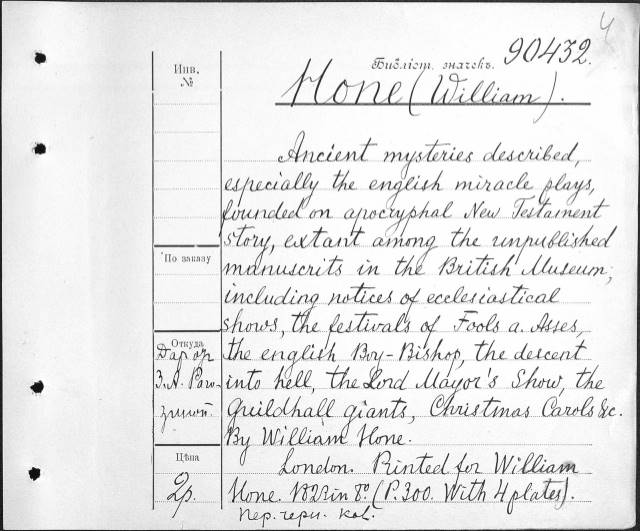 4
Инв.
№
Библіот. значекъ. 90432.
Hone (William).
Ancient mysteries described,
especially the english miracle plays,
founded on apocryphal New Testament
story, extant among the unpublished
manuscrits in the British Museum;
По заказу
including notices of ecclesiastical
shows, the festivals of Fools a. Asses,
Откуда
Дар от
the english Boy-Bishop, the descent
З.А. Рого-
into hell, the Lord Mayor's Show, the
зиной.
Guildhall giants, Christmas Carols &c.
By William Hone.
Цѣна
London. Printed for William
2р.
Hone. 1823 in 8º. (P. 300. With 4 plates).
пер. черн. кол.